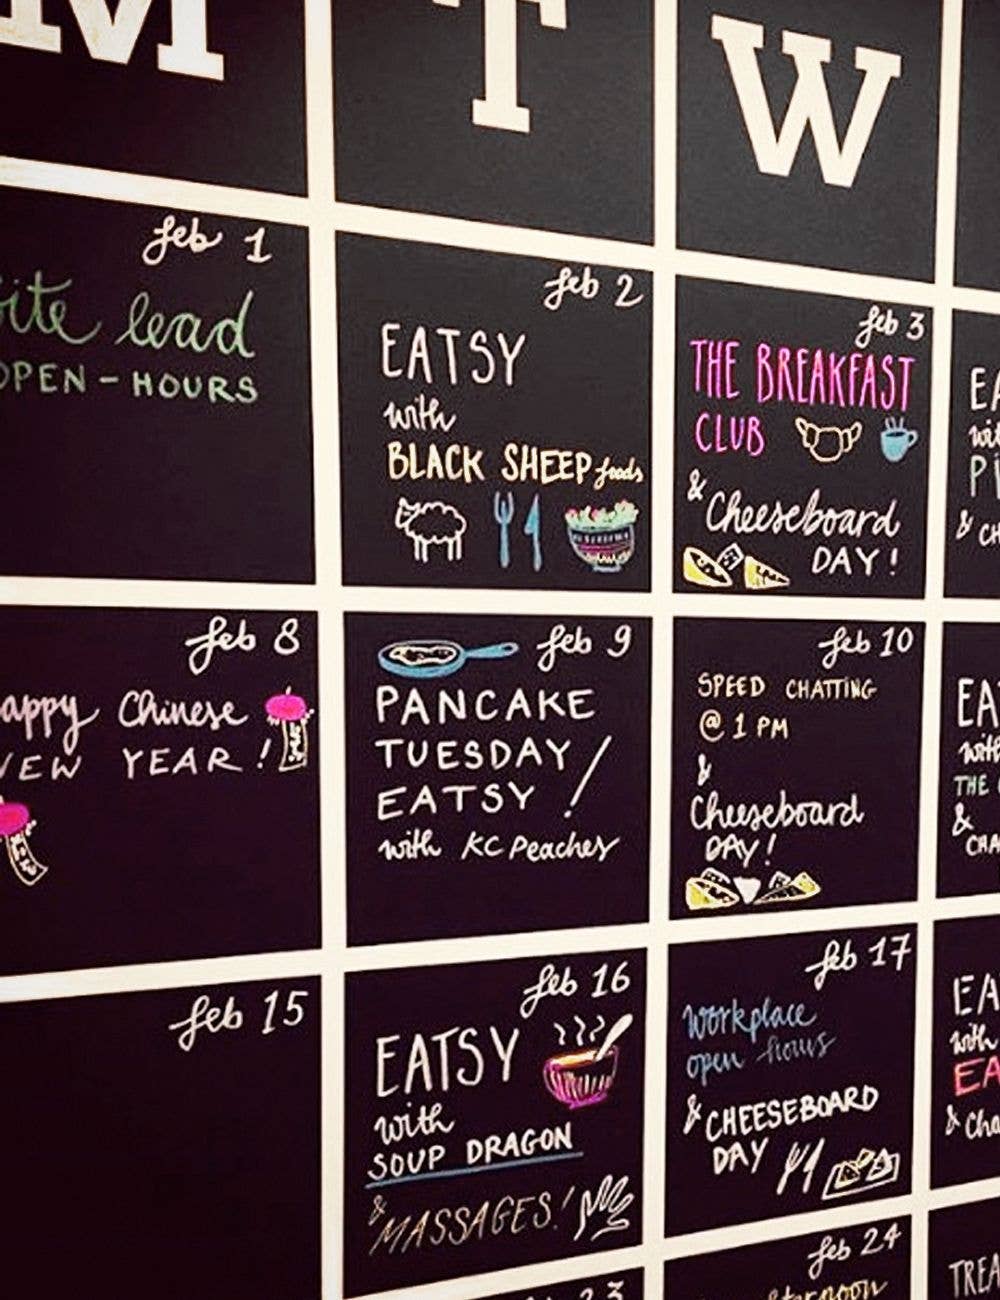 M
T
W
feb 1
Site lead
OPEN-HOURS
feb 2
EATSY
with
BLACK SHEEP foods
feb 3
THE BREAKFAST
CLUB
& Cheeseboard
DAY!
EA
wit
Pi
& CH
feb 8
appy Chinese
NEW YEAR!
feb 9
PANCAKE
TUESDAY/
EATSY!
with KC Peaches
feb 10
SPEED CHATTING
@ 1 PM
&
Cheeseboard
DAY!
EA
with
THE
&
CHA
feb 15
feb 16
EATSY
with
SOUP DRAGON
& MASSAGES!
feb 17
workplace
open hours
& CHEESEBOARD
DAY
EA
with
EA
& Cha
feb 24
TREA